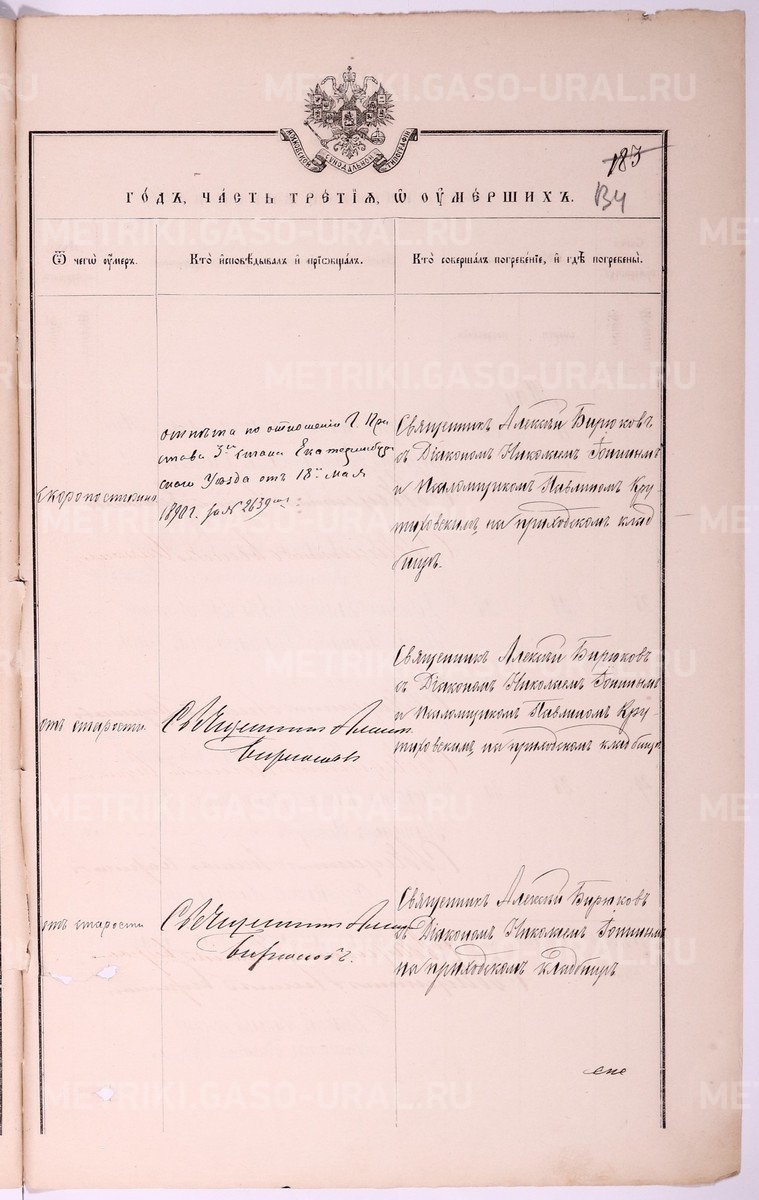 МОСКОВСКОЙ СѴНОДАЛЬНОЙ ТИПОГРАФІИ
183
134
ГОДЪ, ЧАСТЬ ТРЕТІЯ, Ѿ ОУМЕРШИХЪ.
Ѿ чегѡ оумеръ.
Кто исповѣдывалъ и пріѡбщалъ.
Кто совершалъ погребеніе, и гдѣ погребены.
Скоропостижно
отпѣта по отношенію Г. При
става 3го стана Екатеринбург
скаго Уѣзда отъ 18го Мая
1890 г. за № 2639мъ
Священникъ Алексѣй Бирюковъ
съ Діакономъ Николаемъ
и Псаломщикомъ Павлиномъ Кру
тиховскимъ, на приходскомъ клад
бищѣ.
отъ старости.
Священникъ Алексѣй
Бирюковъ
Священникъ Алексѣй Бирюковъ
съ Діакономъ Николаемъ
и Псаломщикомъ Павлиномъ Кру
тиховскимъ, на приходскомъ кладбищѣ
отъ старости
Священникъ Алексѣй
Бирюковъ.
Священникъ Алексѣй Бирюковъ
съ Діакономъ Николаемъ
на приходскомъ кладбищѣ
METRIKI.GASO-URAL.RU